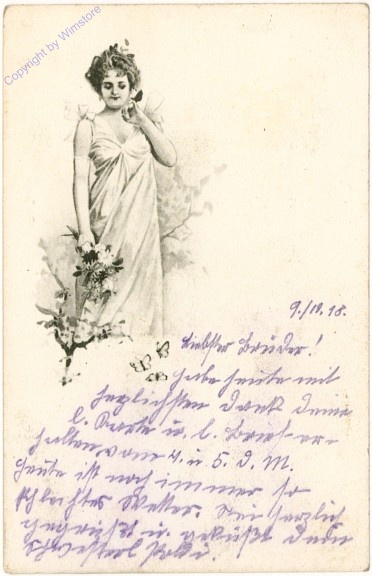 Copyright by Wimstore
9./10. 18.
Liebster Bruder!
Habe heute mit
herzlichsten Dank Deine
l. Karte u. l. Brief er-
halten vom 4. u 5. d. M.
Heute ist noch immer so
schlechtes Wetter. Sei herzlich
gegrüßt u. geküßt Dein
Schwesterl